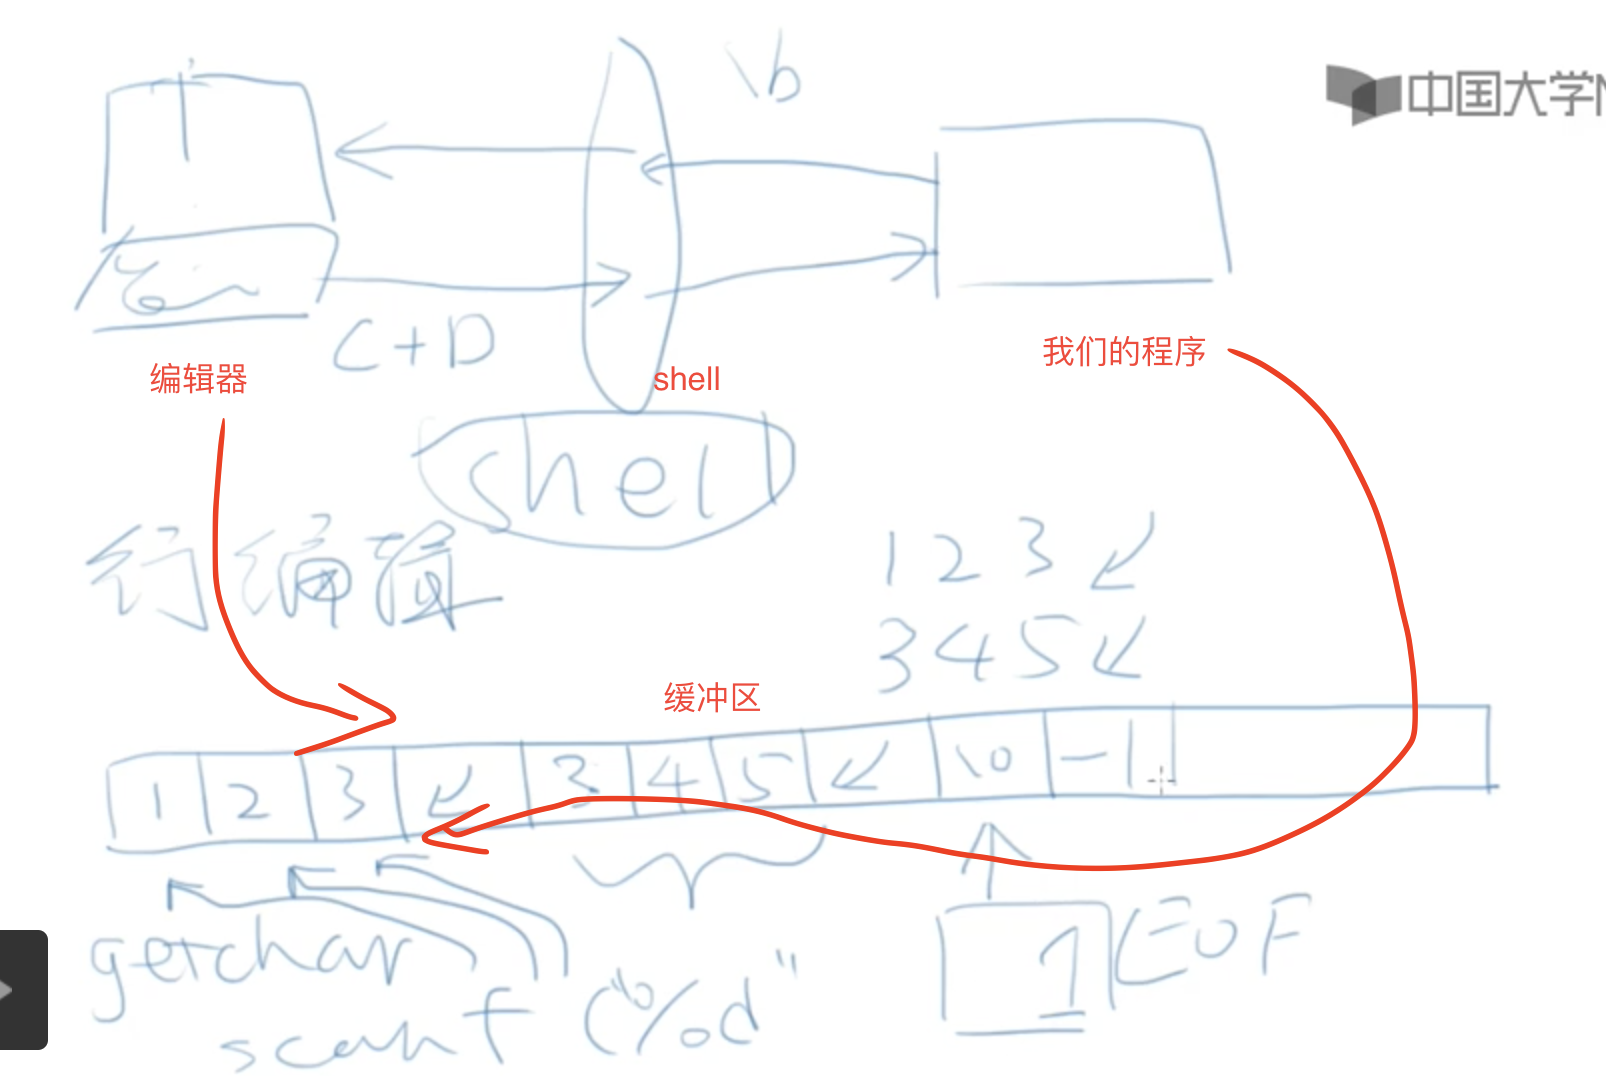 \b
中国大学M
C+D
编辑器
shell
我们的程序
shell
行编辑
123↙
345↙
缓冲区
1 2 3 ↙ 3 4 5 ↙ \0 -1
getchar
1 EOF
scanf("%d"